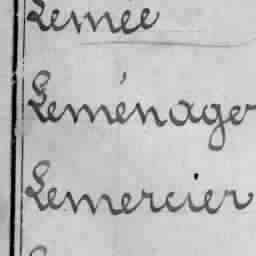 Lemée
Leménager
Lemercier